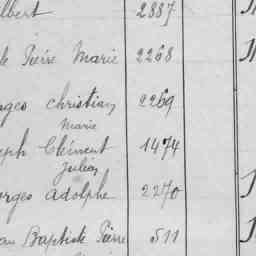 lbert 2887
Pierre Marie 2268
rges Christian 2269
Marie
eph Clément 1474
Julien
orges Adolphe 2270
an Baptiste Pierre 511